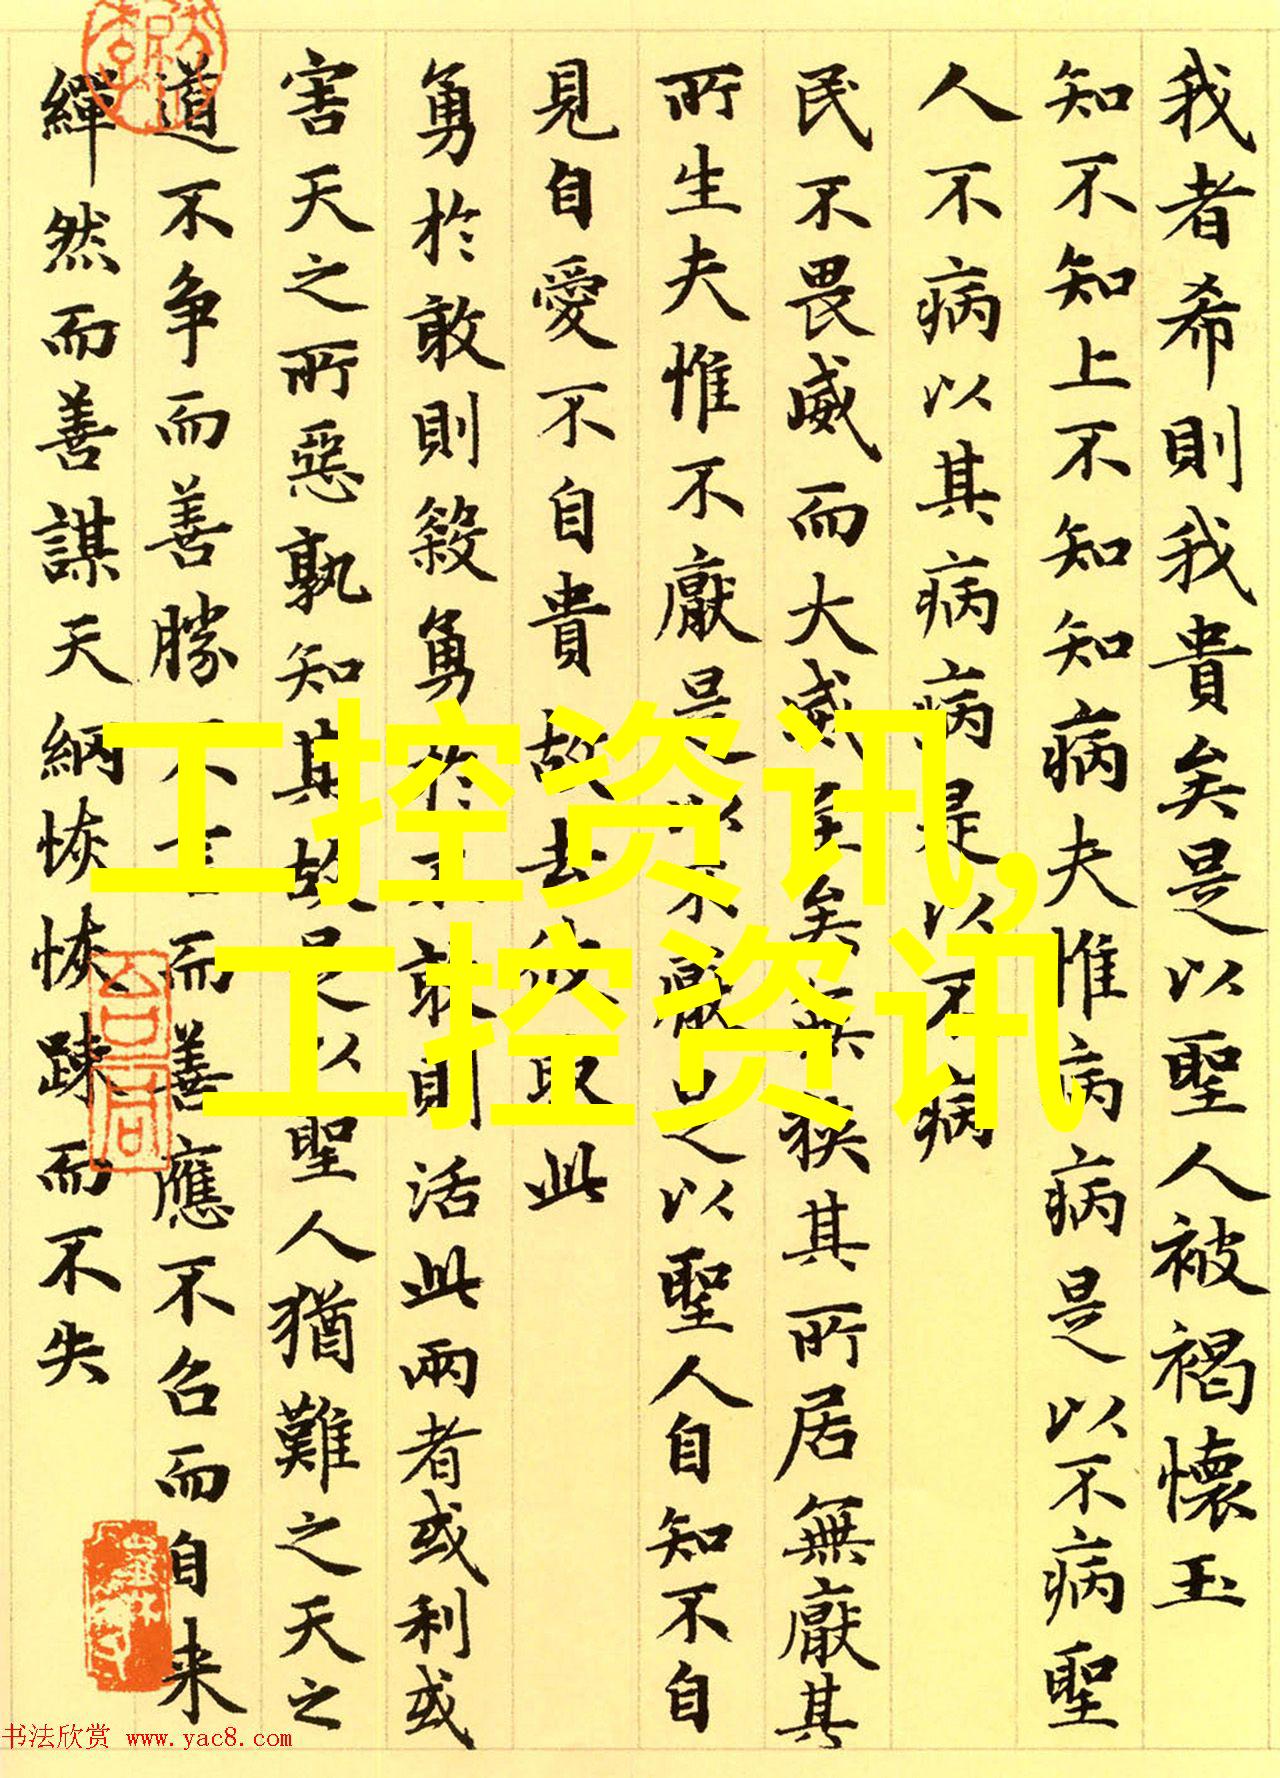 我者希則我貴矣是以聖人被褐懷玉
知不知上不知知病夫惟病病是以不病聖
人不病以其病病是以不病
民不畏威而大威至矣無狹其所居無厭其
所生夫惟不厭是以不厭是以聖人自知不自
見自愛不自貴故去彼取此
勇於敢則殺勇於不敢則活此兩者或利或
害天之所惡孰知其故是以聖人猶難之天之
道不争而善勝不言而善應不召而自来
繟然而善謀天網恢恢踈而不失
工控资讯,
工控资讯
书法欣赏 www.yac8.com